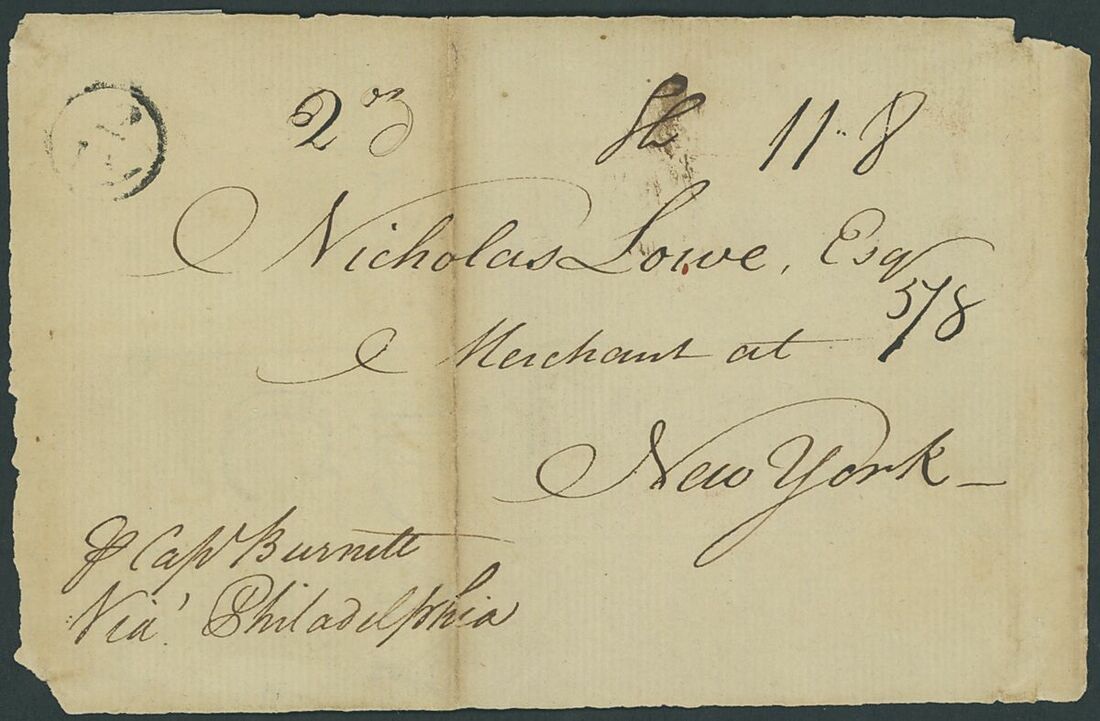 2 oz Sh 11..8
Nicholas Lowe, Esqr
5/8
Merchant at
New York
⅌ Capt Burnett
Via Philadelphia